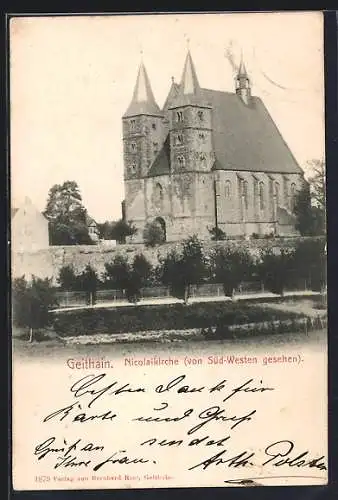 Geithain. Nicolaikirche (von Süd-Westen gesehen).
Besten Dank für
Karte und Gruß
Gruß an sendet
Ihre Frau. Arth
1879 Verlag von Bernhard Geithain